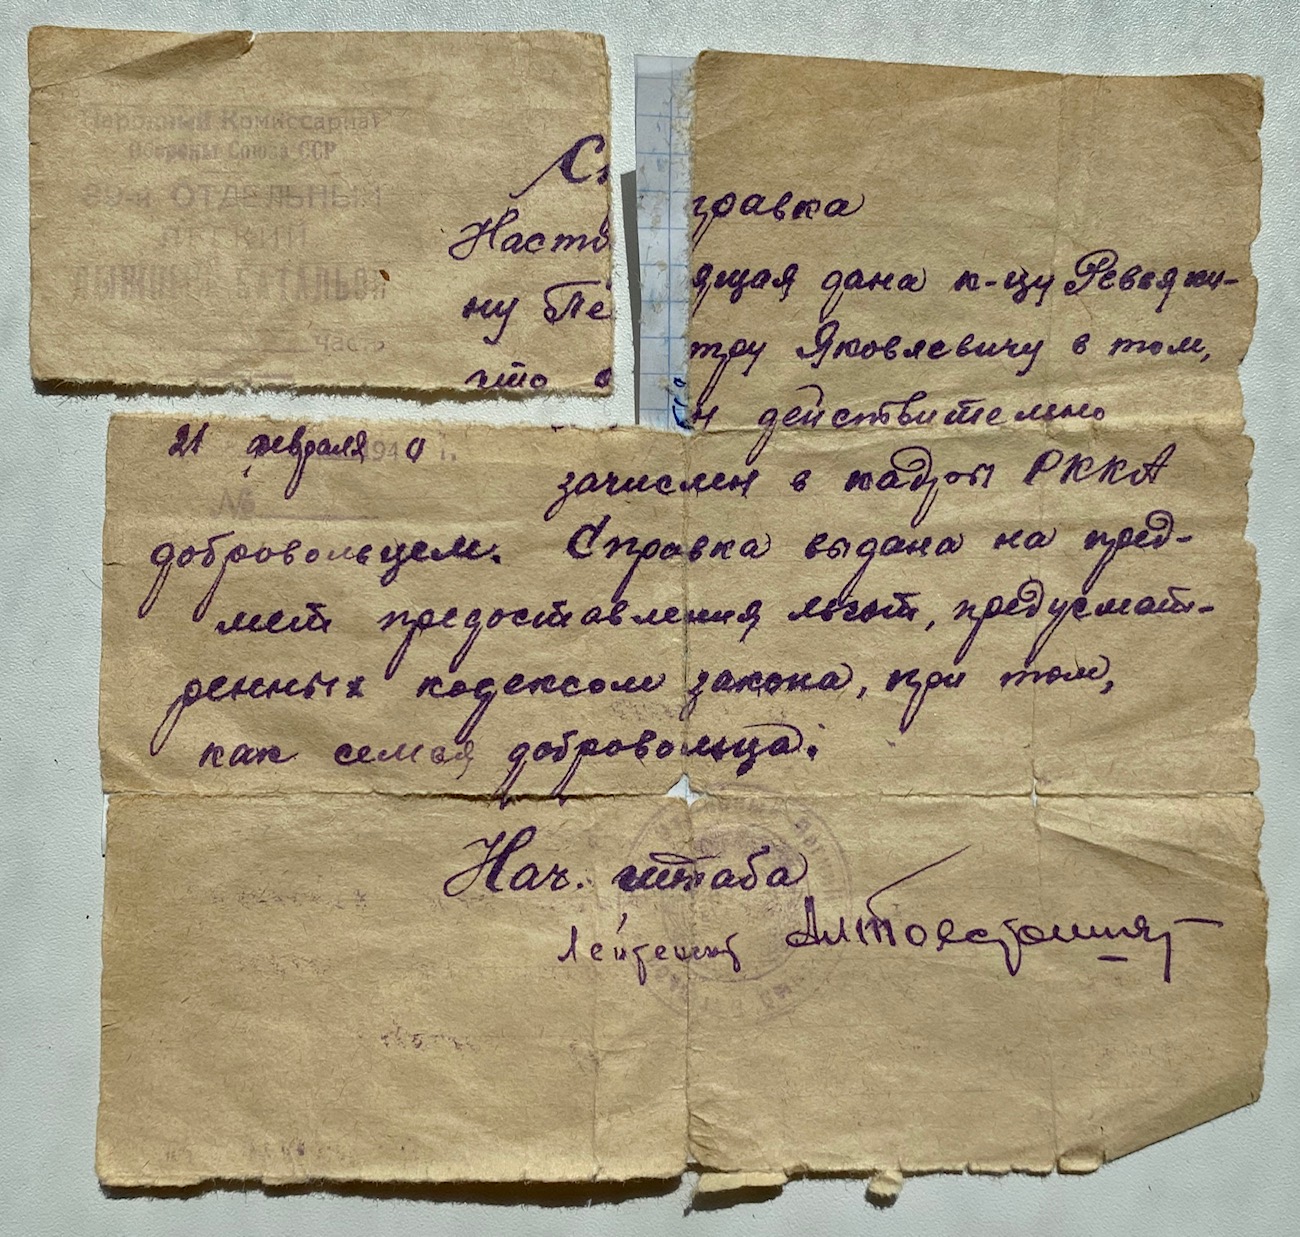 Народный Комиссариат
Обороны Союза ССР
ОТДЕЛЬНЫЙ
ЛЕГКИЙ
ЛЫЖНЫЙ БАТАЛЬОН
часть
21 февраля 1940 г.
№
Справка
Настоящая дана к-цу Ревяки-
ну Петру Яковлевичу в том,
что он действительно
зачислен в кадры РККА
добровольцем. Справка выдана на пред-
мет предоставления льгот, предусмат-
ренных кодексом закона, при том,
как семья добровольца.
Нач. штаба
Лейтенант